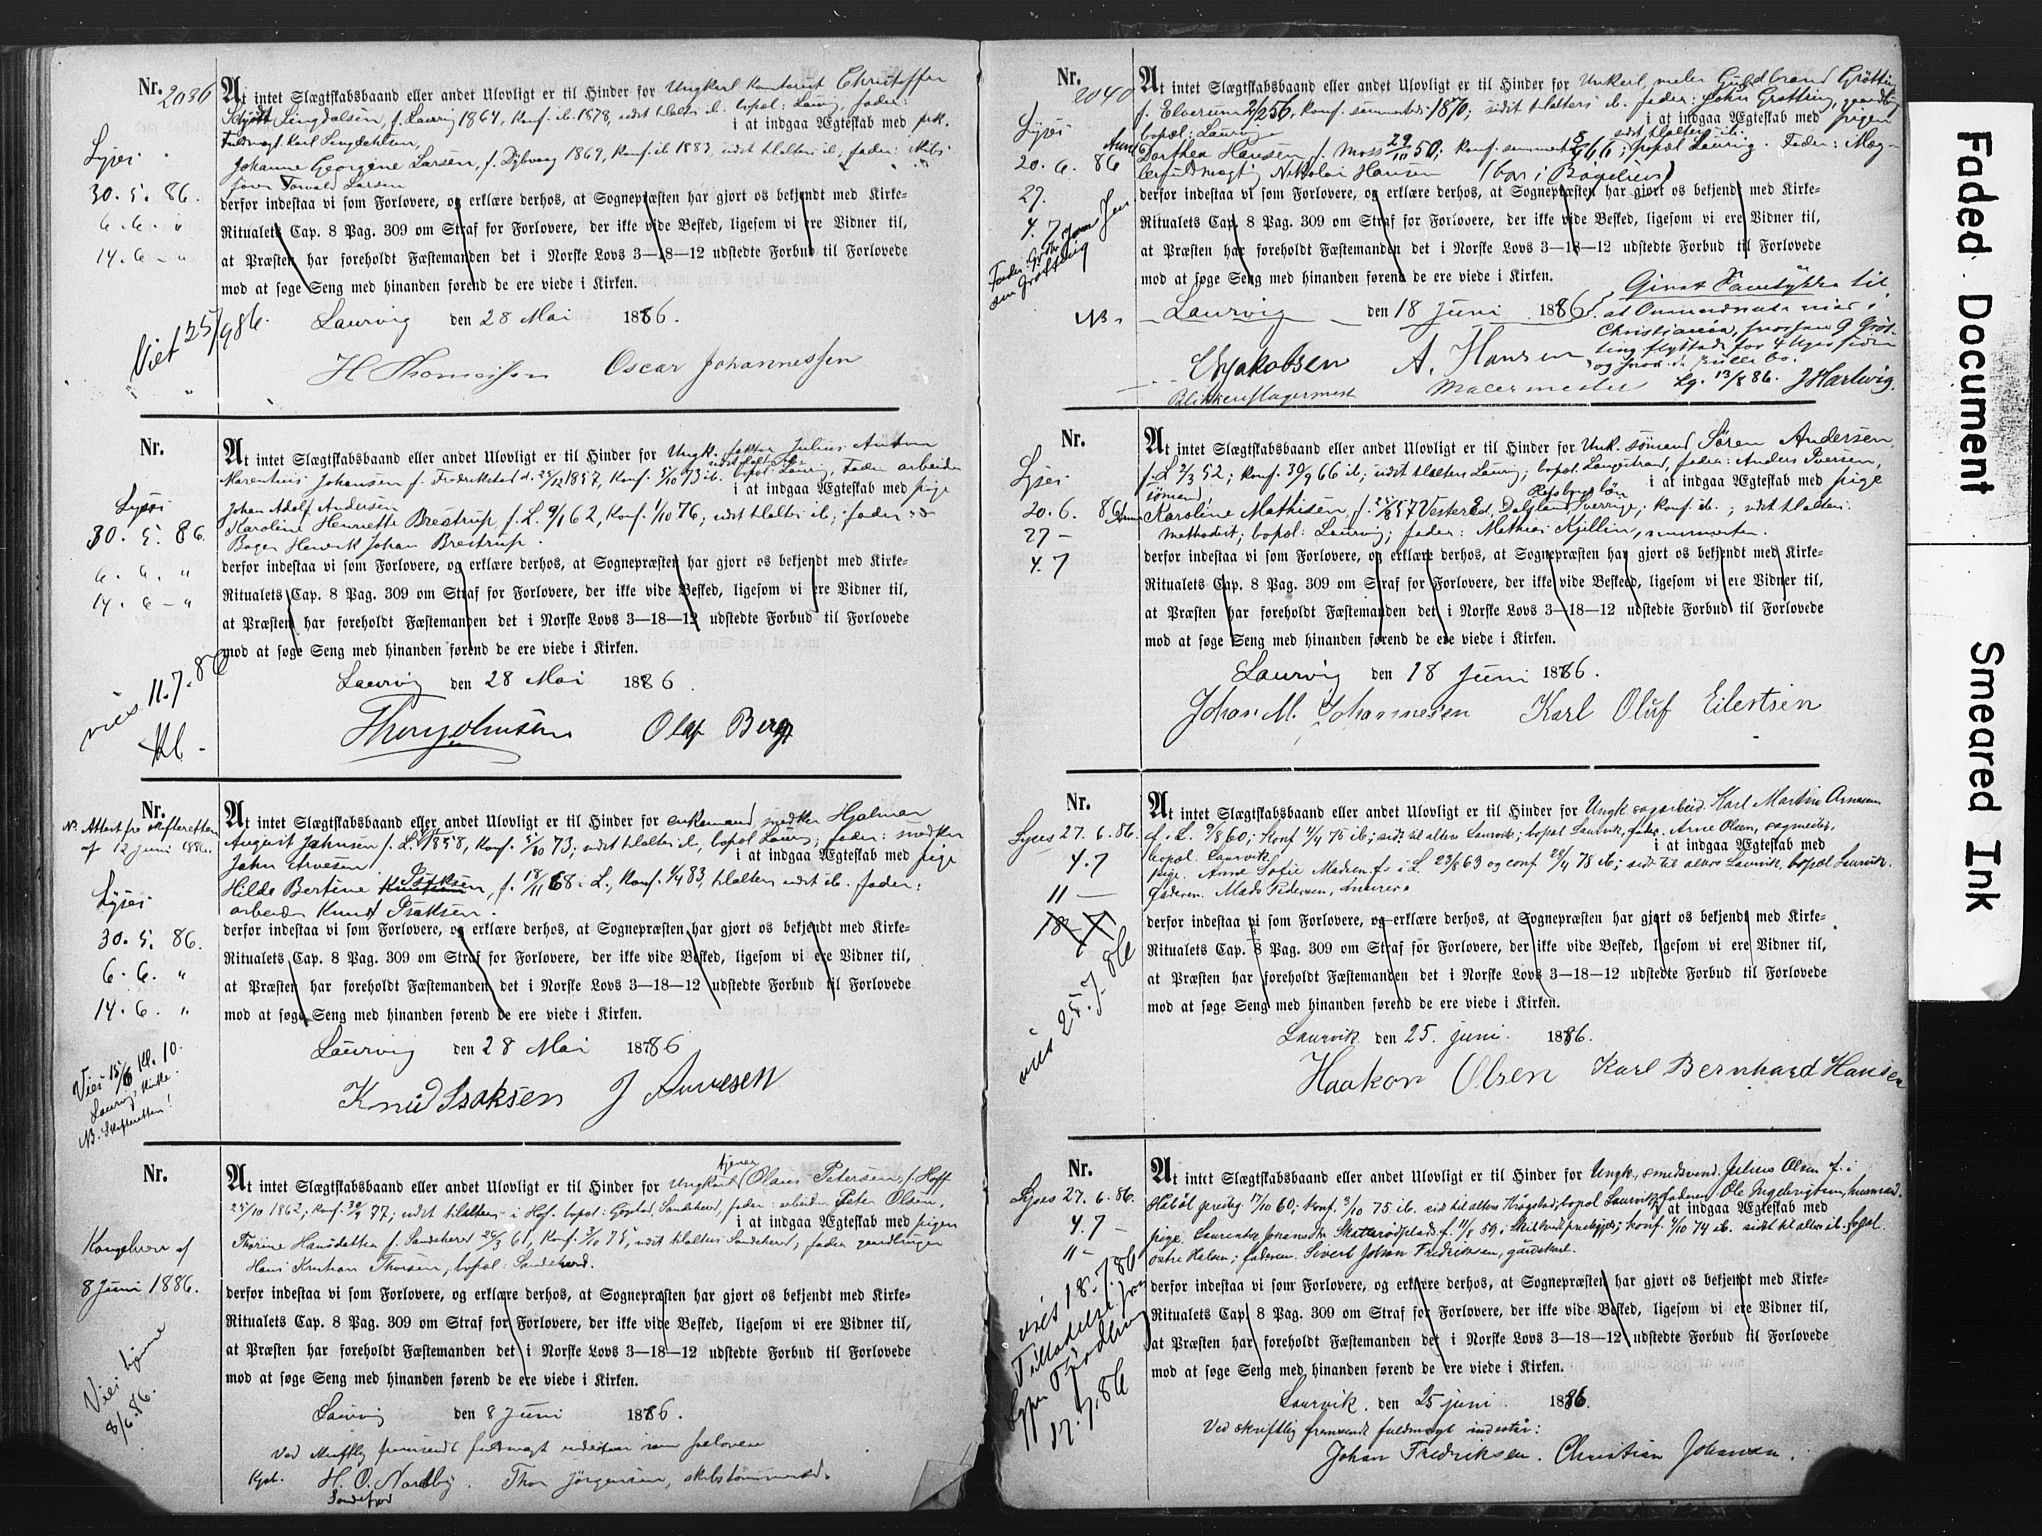 Nr. 2036
At intet Slægtskabsbaand eller andet Ulovligt er til Hinder for Ungkarl kontorist Christoffer
Schjött Lingdalsen, f. Laurvig 1864, Konf. ib. 1878, udst. tilalters ib. bopæl: Laurvig, fader:
i at indgaa Ægteskab med pik.
Fuldmægt. Karl Lingdalsen,
Johanne Georgine Larsen, f. Dybvaag 1869, Konf. ib 1883, udst. tilalters ib, fader: skibs-
fører Torvald Larsen
derfor indestaa vi som Forlovere, og erklære derhos, at Sognepræsten har gjort os bekjendt med Kirke-
Ritualets Cap. 8 Pag. 309 om Straf for Forlovere, der ikke vide Besked, ligesom vi ere Vidner til,
at Præsten har foreholdt Fæstemanden det i Norske Lovs 3—18—12 udstedte Forbud til Forlovede
mod at søge Seng med hinanden førend de ere viede i Kirken.
Laurvig den 28 Mai 1886.
H Thomassen Oscar Johannessen
Lyses
30. 5. 86.
6. 6. "
14. 6 - "
Viet 25/9 86.
Nr.
At intet Slægtskabsbaand eller andet Ulovligt er til Hinder for Ungk. faktor Julius Anton
Marentius Johansen f. Fredrikstad d. 25/12 1857, Konf. 5/10 73 ib. udst. tilalt. ib. bopæl Laurvig, Fader arbeider
i at indgaa Ægteskab med pige
Johan Adolf Andersen
Karoline Henriette Brestrup, f. L. 9/1 62, Konf. 1/10 76; udst. tilalters ib; fader:
Bager Henrik Johan Brestrup.
derfor indestaa vi som Forlovere, og erklære derhos, at Sognepræsten har gjort os bekjendt med Kirke-
Ritualets Cap. 8 Pag. 309 om Straf for Forlovere, der ikke vide Besked, ligesom vi ere Vidner til,
at Præsten har foreholdt Fæstemanden det i Norske Lovs 3—18—12 udstedte Forbud til Forlovede
mod at søge Seng med hinanden førend de ere viede i Kirken.
Laurvig den 28 Mai 1886.
Thor Johnsen Olaf Berg
Lyses
30. 5. 86.
6. 6. "
14. 6 - "
vies 11.7.86
Nr.
N. Attest fra skifteretten
af 12 juni 1886.
At intet Slægtskabsbaand eller andet Ulovligt er til Hinder for enkemand, snedker Hjalmar
August Jahnsen f. L. 1858, Konf. 5/10 73, udst. tilalters ib, bopæl Laurvig; fader: snedker
i at indgaa Ægteskab med pige
John Arvesen,
Hilda Bertine Isaksen, f. 18/11 68 i L., Konf. 1/4 83, tilalters udst. ib. fader:
arbeider Knud Isaksen.
derfor indestaa vi som Forlovere, og erklære derhos, at Sognepræsten har gjort os bekjendt med Kirke-
Ritualets Cap. 8 Pag. 309 om Straf for Forlovere, der ikke vide Besked, ligesom vi ere Vidner til,
at Præsten har foreholdt Fæstemanden det i Norske Lovs 3—18—12 udstedte Forbud til Forlovede
mod at søge Seng med hinanden førend de ere viede i Kirken.
Laurvig den 28 Mai 1886
Knud Isaksen J Arvesen
Lyses
30. 5. 86.
6. 6. "
14. 6. "
Vies 15/6 Kl. 10.
Laurvig Kirke.
NB. Skifteretten!
Nr.
At intet Slægtskabsbaand eller andet Ulovligt er til Hinder for Ungkarl tjener Olaus Petersen, f. Hoff
25/10 1862, Konf. 30/9 77; udst. tilalters i Hof. bopæl: Gogstad, Sandeherd, fader: arbeider Peter Olsen,
i at indgaa Ægteskab med pigen
Thorine Hansdatter f. Sandeherd 26/3 61, Konf. 3/10 75, udst. tilalters Sandeherd, fader gaardbruger
Hans Kristian Thorsen, bopæl: Sandeherd.
derfor indestaa vi som Forlovere, og erklære derhos, at Sognepræsten har gjort os bekjendt med Kirke-
Ritualets Cap. 8 Pag. 309 om Straf for Forlovere, der ikke vide Besked, ligesom vi ere Vidner til,
at Præsten har foreholdt Fæstemanden det i Norske Lovs 3—18—12 udstedte Forbud til Forlovede
mod at søge Seng med hinanden førend de ere viede i Kirken.
Laurvig den 8 Juni 1886.
Ved skriftlig fremsendt fuldmagt indestaar som forlovere
Kpt. H. O. Nordby. Thor Jörgensen, skibstømmermd.
Sandefjord
Kongebrev af
8 Juni 1886.
Vies hjemme
8/6 86.
Nr. 2040
At intet Slægtskabsbaand eller andet Ulovligt er til Hinder for Unkarl, maler Guldbrand Grötting
f. Elverum 2/2 56, Konf. sammesteds 1870; sidst tilalters ib. fader: Johs Grötting, gaardbr.
i at indgaa Ægteskab med pigen
bopæl: Laurvig
Dorthea Hansen f. Moss 29/11 50; Konf. sammest. 66; sidst tilalters ib. bopæl Laurvig. Fader: Mæg-
lerfuldmægtig Nikolai Hansen (bor i Bogelien)
derfor indestaa vi som Forlovere, og erklære derhos, at Sognepræsten har gjort os bekjendt med Kirke-
Ritualets Cap. 8 Pag. 309 om Straf for Forlovere, der ikke vide Besked, ligesom vi ere Vidner til,
at Præsten har foreholdt Fæstemanden det i Norske Lovs 3—18—12 udstedte Forbud til Forlovede
mod at søge Seng med hinanden førend de ere viede i Kirken.
Laurvig den 18 Juni 1886
Givet Samtykke til
at Ommeldte vies i
Christiania, hvorhen G Gröt-
ting flyttede for 4 Uger siden
og hvor de skulle bo.
Lg. 13/8 86. J Hartwig.
Chr Jakobsen A. Hansen
Blikkenslagermest Malermester
Lyses
20. 6. 86
27.
4. 7
NB.
Nr.
At intet Slægtskabsbaand eller andet Ulovligt er til Hinder for Unk. sömand Sören Andersen
f. L 2/3 52; Konf. 30/9 66 ib; udst tilalters Laurvig; bopæl. Langestrand, fader: Anders Iversen,
i at indgaa Ægteskab med pige
sömand,
Karoline Mathisen, f. 25/8 57 Vester Ed, Dalsland Sverrige; Konf. ib.; udst tilalters.
methodist; bopæl: Laurvig; fader: Mathias Kjellin, murmester.
derfor indestaa vi som Forlovere, og erklære derhos, at Sognepræsten har gjort os bekjendt med Kirke-
Ritualets Cap. 8 Pag. 309 om Straf for Forlovere, der ikke vide Besked, ligesom vi ere Vidner til,
at Præsten har foreholdt Fæstemanden det i Norske Lovs 3—18—12 udstedte Forbud til Forlovede
mod at søge Seng med hinanden førend de ere viede i Kirken.
Laurvig den 18 Juni 1886.
Johan M. Johannesen Karl Oluf Eilertsen
Lyses
20. 6. 86
27 -
4. 7
Nr.
At intet Slægtskabsbaand eller andet Ulovligt er til Hinder for Ungk sagarbeid. Karl Martin Arnesen
f. i L. 9/8 60; Konf 4/4 75 ib; sidst til alters Laurvik; bopæl Laurvik, fader. Arne Olsen, sagmester,
i at indgaa Ægteskab med
bopæl. Laurvik.
pige. Anne Sofie Madsen f. i L 23/8 63 og conf 28/4 78 ib; sidst til alters Laurvik, bopæl Laurvik.
Faderen. Mads Pedersen, murer.
derfor indestaa vi som Forlovere, og erklære derhos, at Sognepræsten har gjort os bekjendt med Kirke-
Ritualets Cap. 8 Pag. 309 om Straf for Forlovere, der ikke vide Besked, ligesom vi ere Vidner til,
at Præsten har foreholdt Fæstemanden det i Norske Lovs 3—18—12 udstedte Forbud til Forlovede
mod at søge Seng med hinanden førend de ere viede i Kirken.
Laurvik den 25. juni 1886.
Haakon Olsen Karl Bernhard Hansen
Lyses 27. 6. 86.
4. 7
11 -
vies 25. 7. 86
Nr.
At intet Slægtskabsbaand eller andet Ulovligt er til Hinder for Ungk. smedsvend. Julius Olsen f. i
Haböl prestg. 17/10 60; konf. 3/10 75 ib. sidst til alters Krogstad, bopæl Laurvik, Faderen Ole Ingebrigtsen, husmand.
i at indgaa Ægteskab med
pige. Laurentze Johansdtr Skatterødplads. f. 11/1 59 i Skibtvedt prestgj.; konf. 4/10 74 ib. sidst til alters ib. bopæl.
østre Halsen; faderen. Sivert Johan Fredriksen, gårdskarl.
derfor indestaa vi som Forlovere, og erklære derhos, at Sognepræsten har gjort os bekjendt med Kirke-
Ritualets Cap. 8 Pag. 309 om Straf for Forlovere, der ikke vide Besked, ligesom vi ere Vidner til,
at Præsten har foreholdt Fæstemanden det i Norske Lovs 3—18—12 udstedte Forbud til Forlovede
mod at søge Seng med hinanden førend de ere viede i Kirken.
Laurvik. den 25 juni 1886.
Ved skriftlig fremsendt fuldmagt indestår:
Johan Fredriksen. Christian Johansen.
Lyses 27. 6. 86.
4. 7 -
11 -
vies 18. 7. 86
Tilladelse fra
17. 7. 86
Faded Document
Smeared Ink